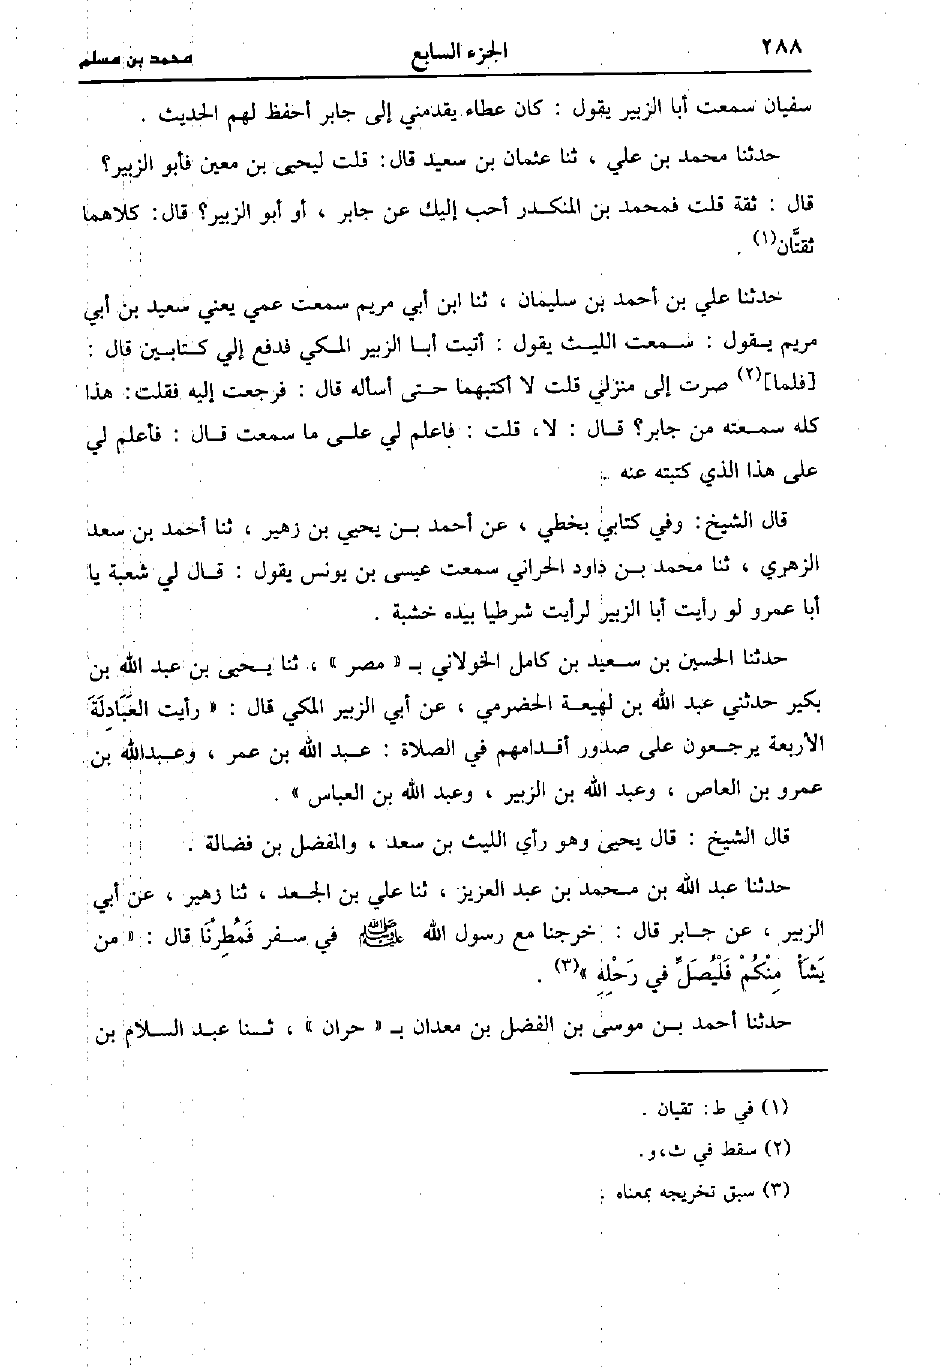 ٢٨٨ الجزء السابع محمد بن مسلم
سفيان سمعت أبا الزبير يقول : كان عطاء يقدمني إلى جابر أحفظ لهم الحديث .
حدثنا محمد بن علي ، ثنا عثمان بن سعيد قال: قلت ليحيى بن معين فأبو الزبير؟
قال : ثقة قلت فمحمد بن المنكدر أحب إليك عن جابر ، أو أبو الزبير؟ قال: كلاهما
ثقتَّان(١) .
حدثنا علي بن أحمد بن سليمان ، ثنا ابن أبي مريم سمعت عمي يعني سعيد بن أبي
مريم يقول : سمعت الليث يقول : أتيت أبا الزبير المكي فدفع إلي كتابين قال :
[فلما](٢) صرت إلى منزلي قلت لا أكتبهما حتى أسأله قال : فرجعت إليه فقلت: هذا
كله سمعته من جابر؟ قال : لا، قلت : فاعلم لي على ما سمعت قال : فأعلم لي
على هذا الذي كتبته عنه .
قال الشيخ: وفي كتابي بخطي ، عن أحمد بن يحيى بن زهير ، ثنا أحمد بن سعد
الزهري ، ثنا محمد بن داود الحراني سمعت عيسى بن يونس يقول : قال لي شعبة يا
أبا عمرو لو رأيت أبا الزبير لرأيت شرطيا بيده خشبة .
حدثنا الحسين بن سعيد بن كامل الخولاني بـ « مصر » ، ثنا يحيى بن عبد الله بن
بكير حدثني عبد الله بن لهيعة الحضرمي ، عن أبي الزبير المكي قال : « رأيت العَبَادِلَةَ
الأربعة يرجعون على صدور أقدامهم في الصلاة : عبد الله بن عمر ، وعبدالله بن
عمرو بن العاص ، وعبد الله بن الزبير ، وعبد الله بن العباس » .
قال الشيخ : قال يحيى وهو رأي الليث بن سعد ، والمفضل بن فضالة .
حدثنا عبد الله بن محمد بن عبد العزيز ، ثنا علي بن الجعد ، ثنا زهير ، عن أبي
الزبير ، عن جابر قال : خرجنا مع رسول الله ﷺ في سفر فَمُطِرْنَا قال : « من
يَشَأْ مِنْكُمْ فَلْيُصَلِّ في رَحْلِهِ »(٣) .
حدثنا أحمد بن موسى بن الفضل بن معدان بـ « حران » ، ثنا عبد السلام بن
(١) في ط: تقيان .
(٢) سقط في ث،و.
(٣) سبق تخريجه بمعناه .